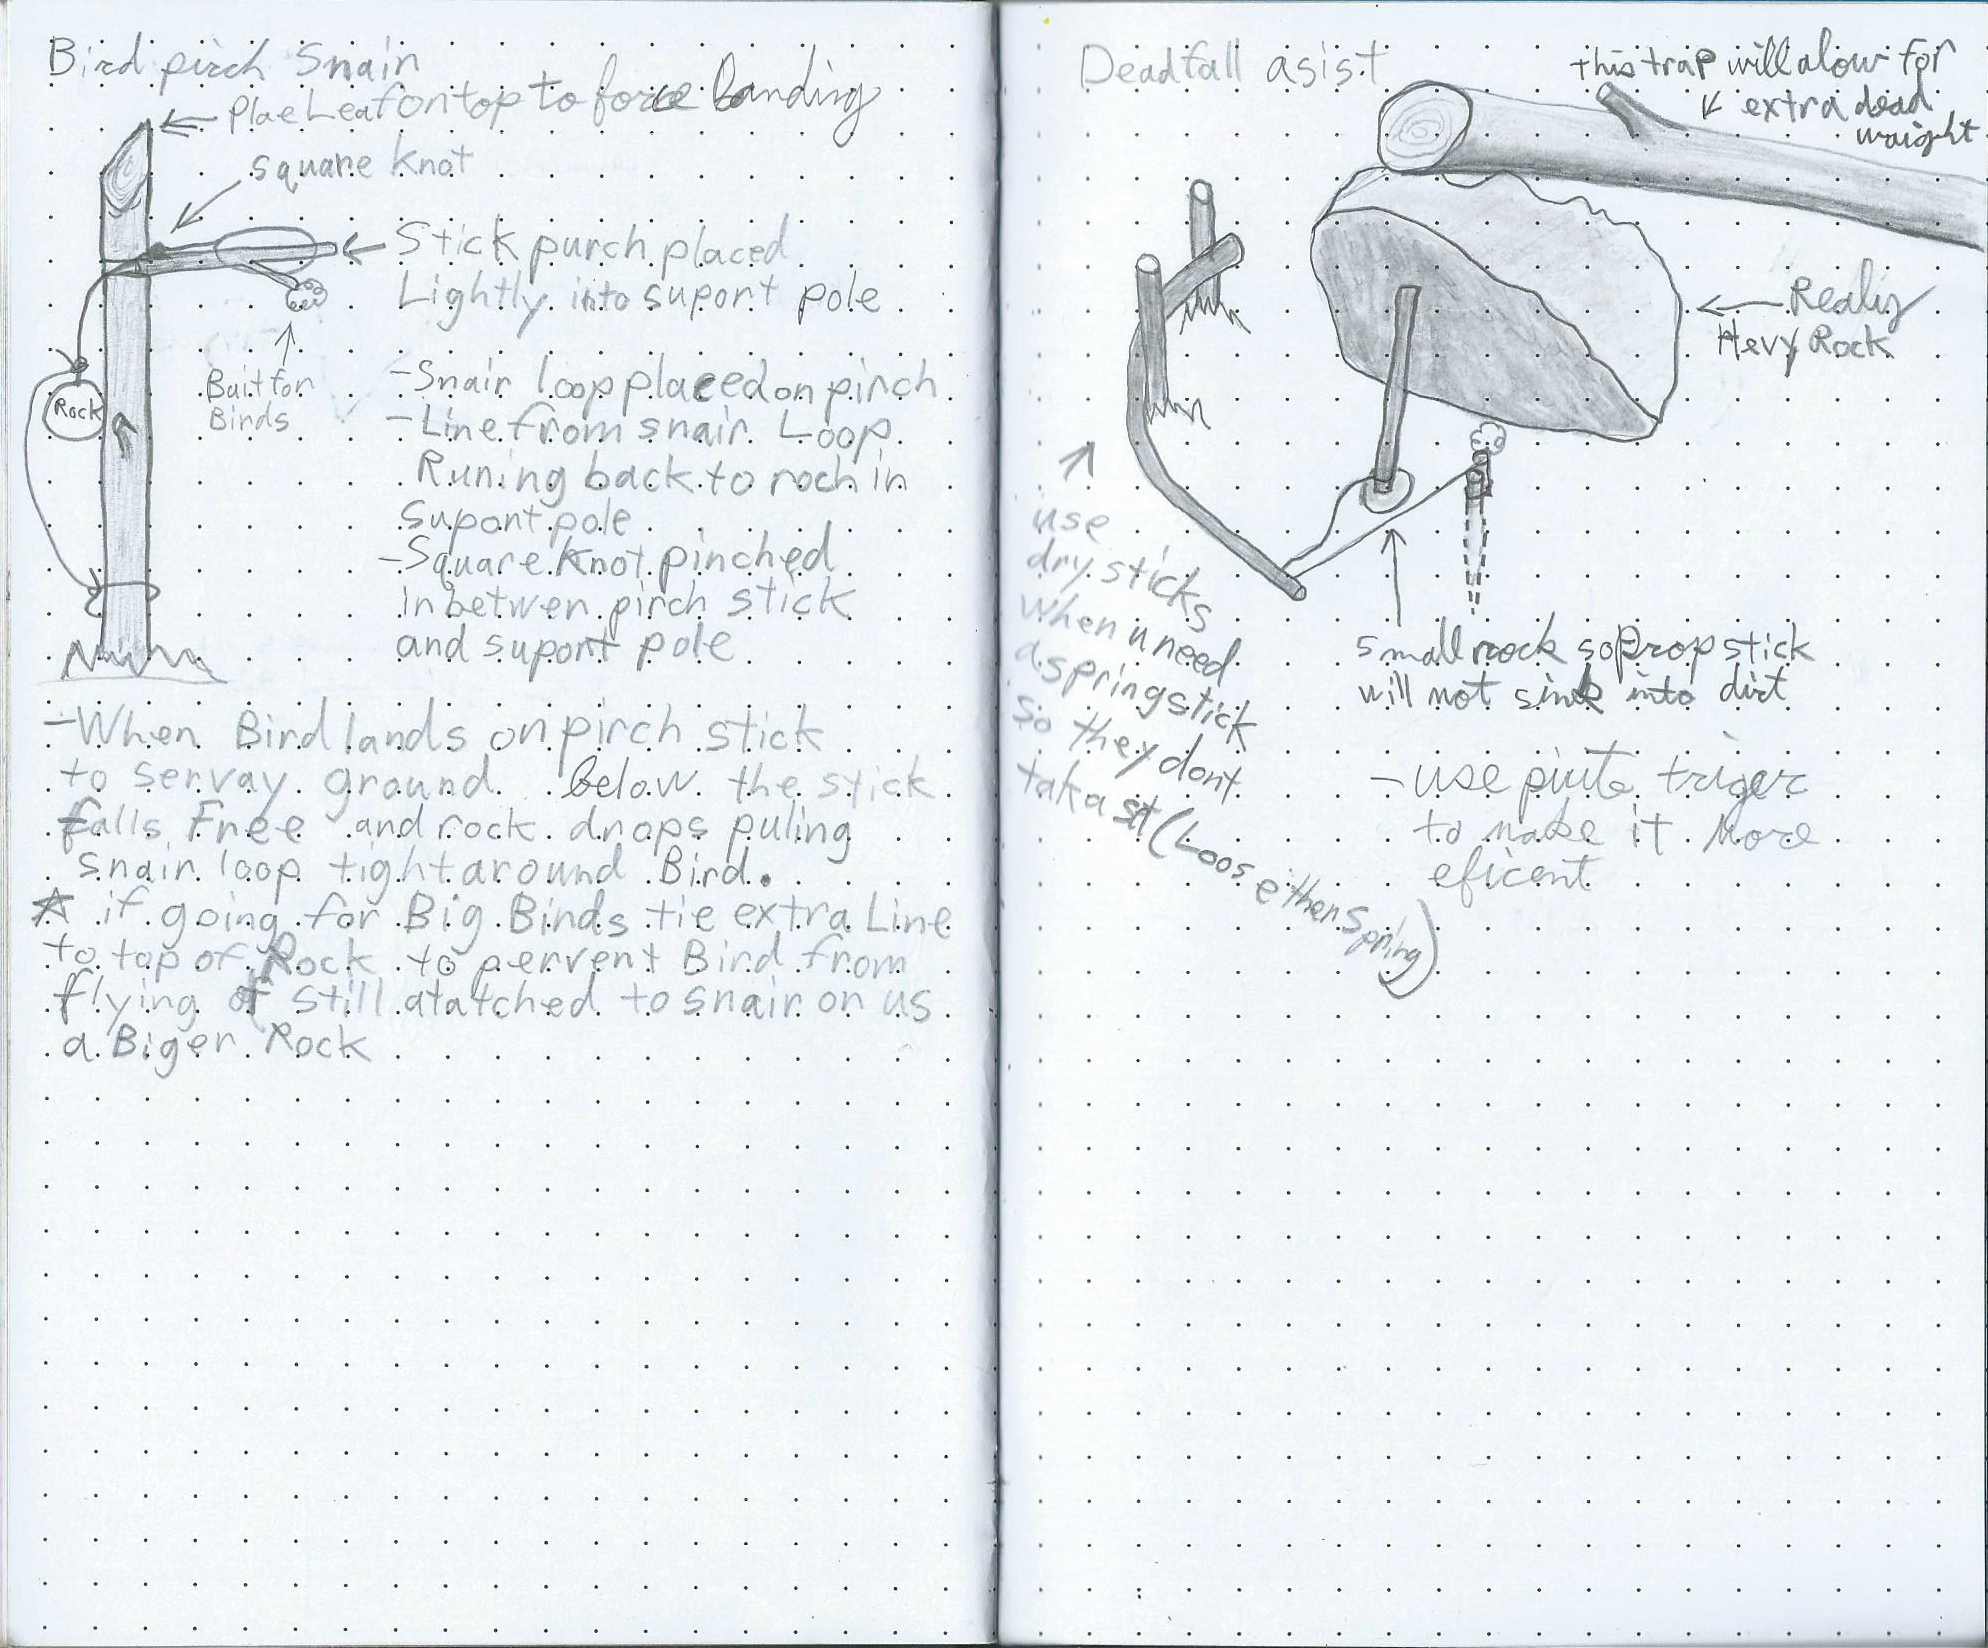 Bird pirch Snair
Plae Leaf on top to force landing
square knot
Stick purch placed
Lightly into suport pole
Rock
Bait for
Binds
-Snair loop placed on pirch
-Line from snair Loop
Runing back to roch in
supont pole
-Square knot pinched
inbetwen pirch stick
and suport pole
-When Bird lands on pirch stick
to servay ground below the stick
falls Free and rock drops puling
snair loop tight around Bird.
☆ if going for Big Binds tie extra Line
to top of Rock to pervent Bird from
flying of still atatched to snair on us
a Biger Rock
Deadfall asist
this trap will alow for
extra dead
waight
Realy
Hevy Rock
use
dry sticks
when u need
a spring stick
so they dont
taka st (Loos either spring)
small rock so prop stick
will not sink into dirt
-use piute triger
to make it more
eficent